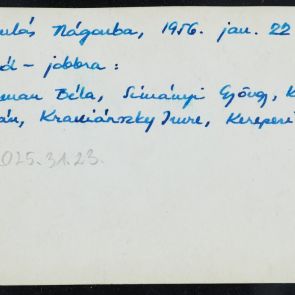 ulás Nágocsba, 1956. jan. 22
ól - jobbra :
man Béla, Simányi György, K
án, Kraniánszky Imre, Kerepesi
025.31.23.